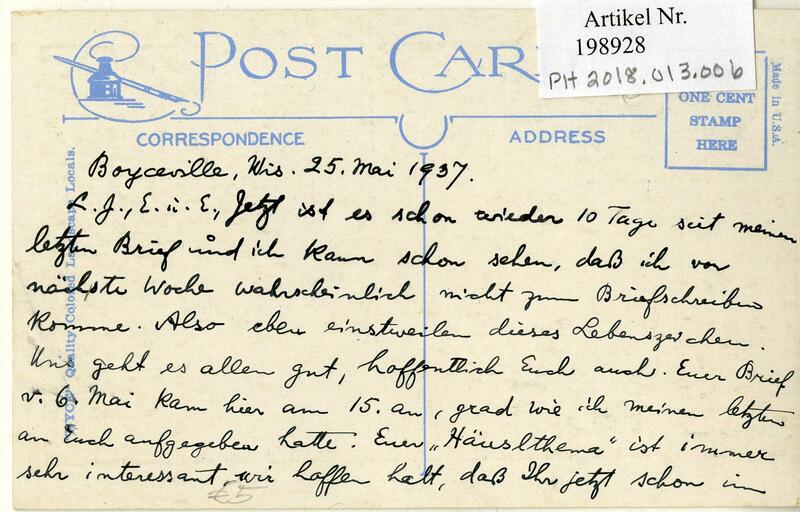 Artikel Nr.
198928
PH 2018.013.006
POST CARD
ONE CENT
STAMP
HERE
Made in U.S.A.
CORRESPONDENCE
ADDRESS
Quality Colored Locals.
Boyceville, Wis. 25. Mai 1937.
L. J., E. u. E., Jetzt ist es schon wieder 10 Tage seit meinen
letzten Brief und ich kann schon sehen, daß ich vor
nächste Woche wahrscheinlich nicht zum Briefschreiben
komme. Also eben einstweilen dieses Lebenszeichen.
Uns geht es allen gut, hoffentlich Euch auch. Euer Brief
v. 6. Mai kam hier am 15. an, grad wie ich meinen letzten
an Euch aufgegeben hatte. Euer „Häuslthema" ist immer
sehr interessant, wir hoffen halt, daß Ihr jetzt schon im